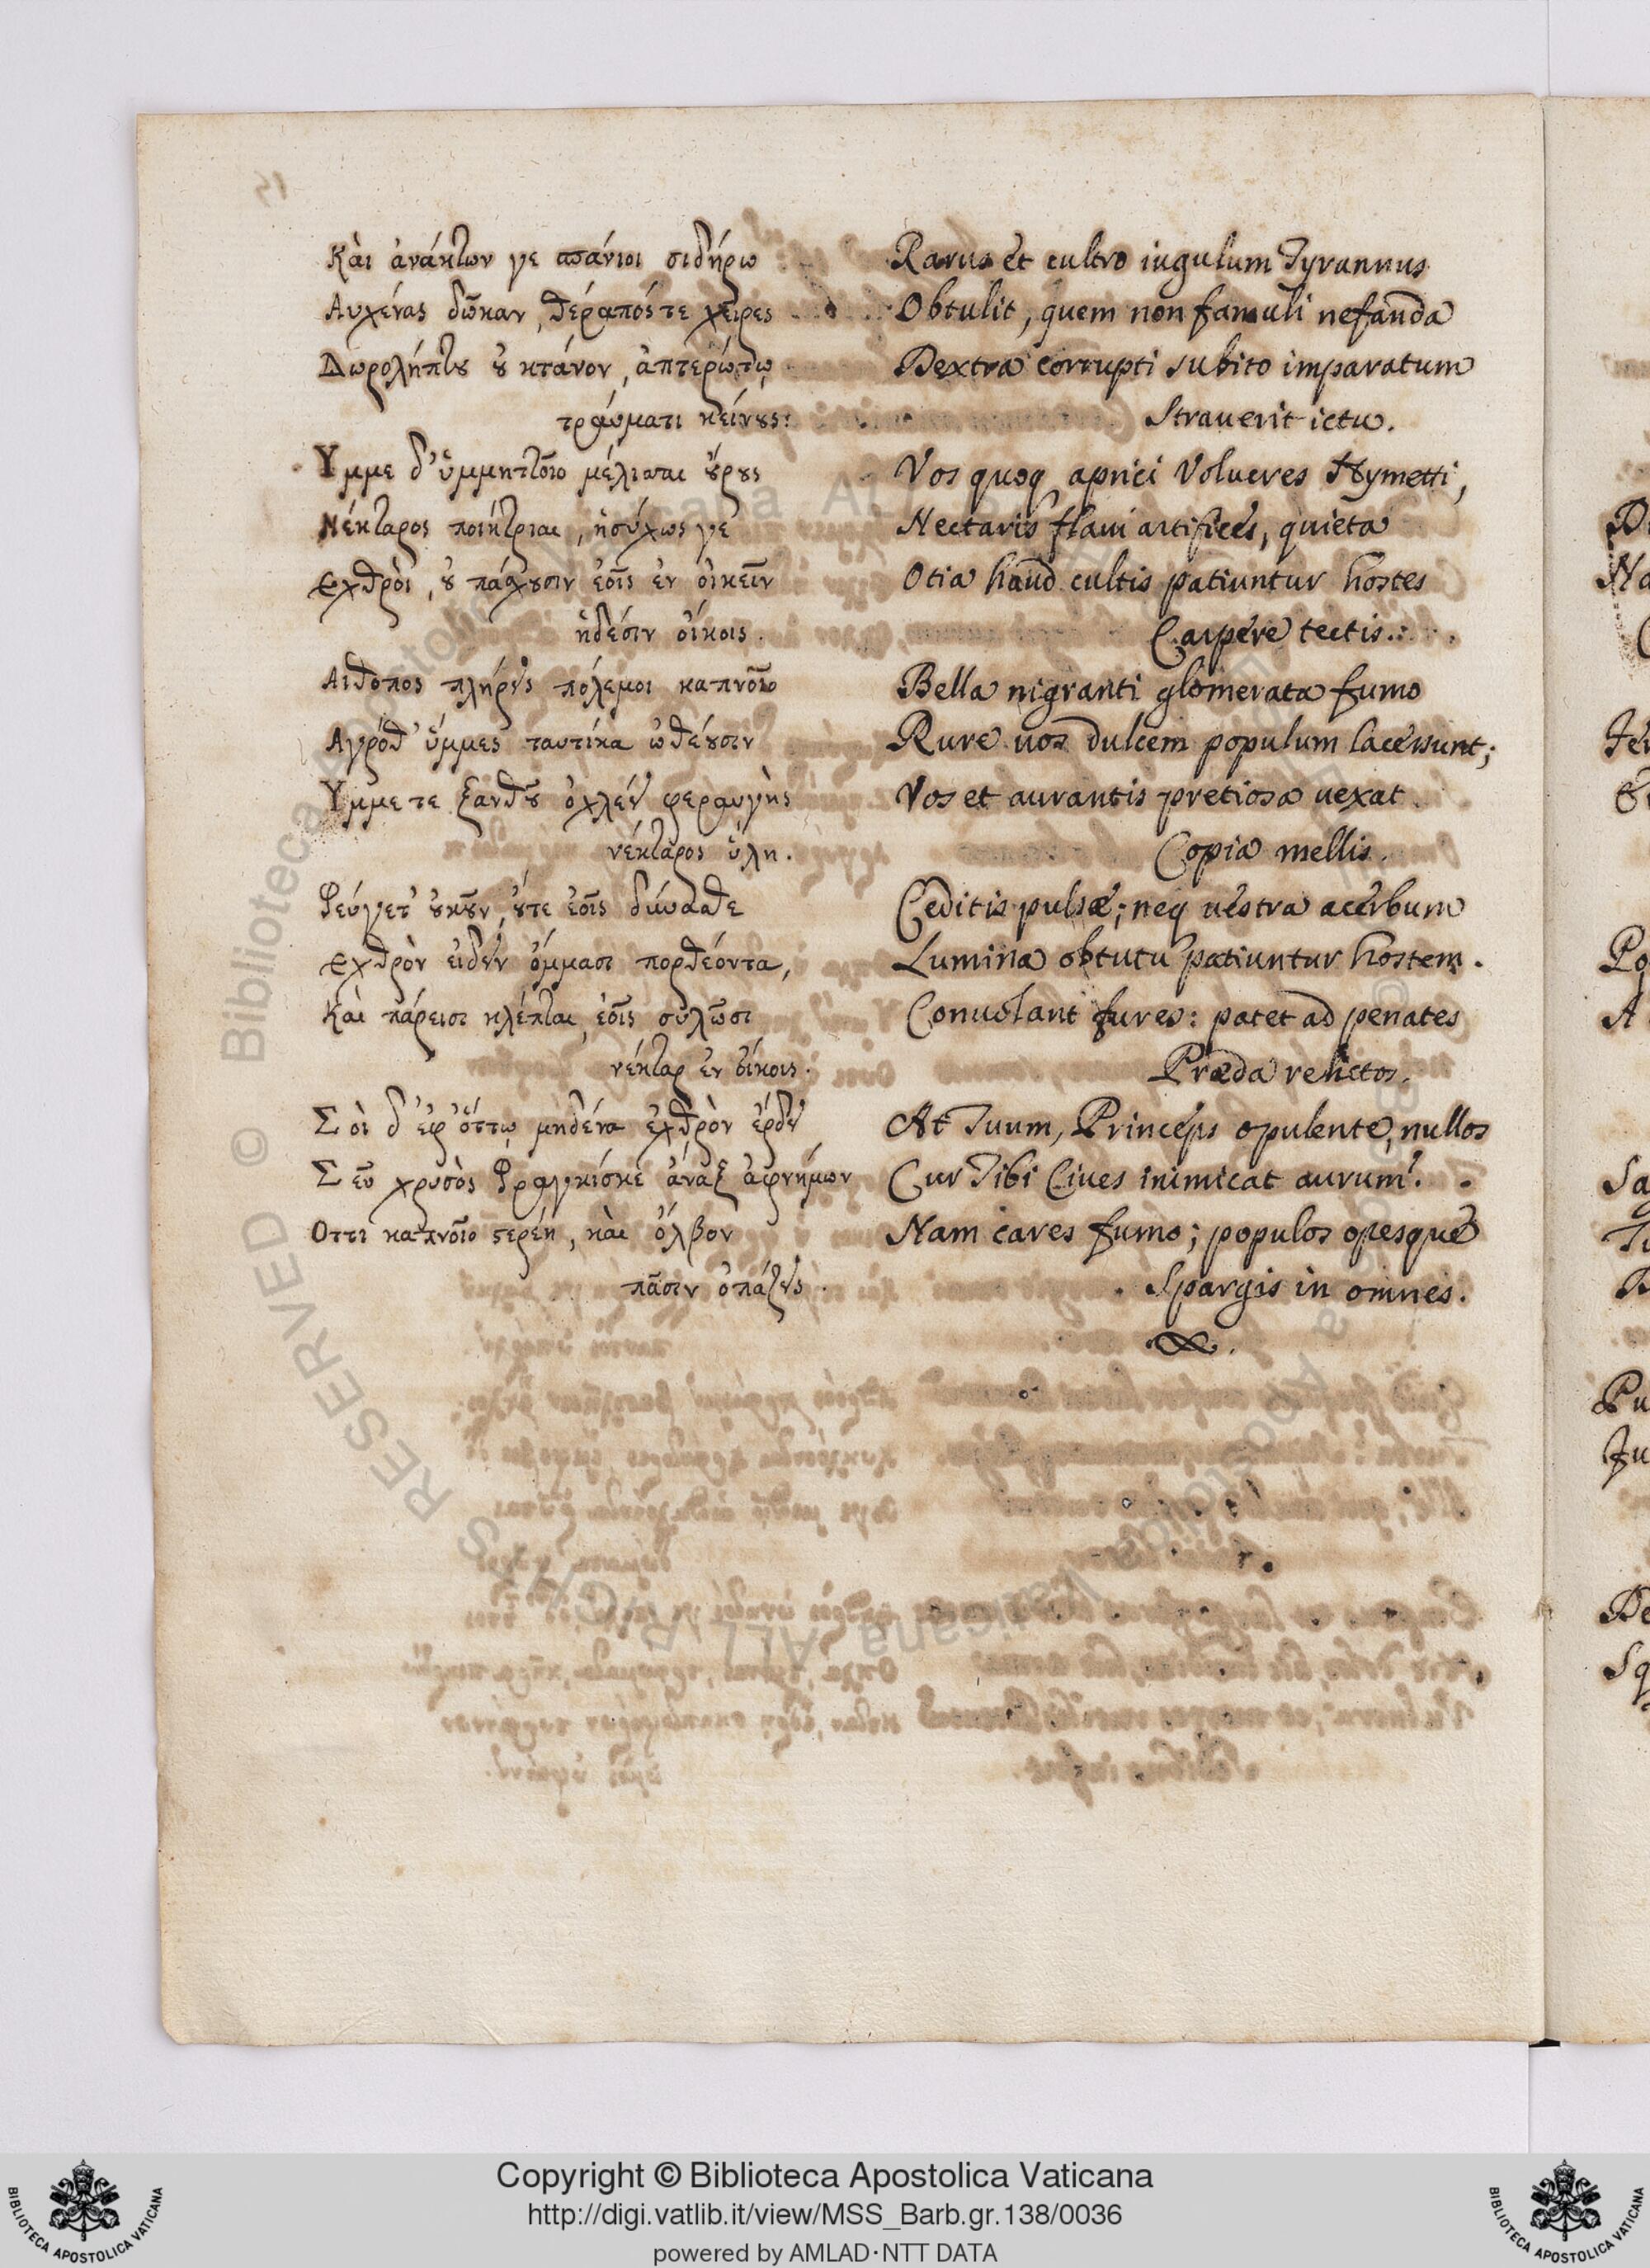 Κὰι ἀνάκτων γε σπάνιοι σιδήρω
Αυχένας δῶκαν, θέραπόστε χεῖρες
Δωρολήπτου οὐ κτάνον, ἀπτερώτῳ
τραύματι κείνους.
Υμμε δ' ὑμμητοῖο μέλισσαι οὔρους
Νέκταρος ποιήτριαι, ἡσύχως γε
εχθρὸι, οὐ πάσχουσιν ἑοῖς ἐν οἰκεῖν
ἡδέσιν οἴκοις.
Αιθοπος πλήρεις πόλεμοι καπνοῖο
Αγρόθ' ὕμμες ταυτίκα ὠθέουσιν
Υμμε τε ξανθοῦ ὀχλεῖν φεραυγὴς
νέκταρος ὕλη.
Φεύγετ' οὐκοῦν, οὔτε ἑοῖς δύνασθε
εχθρὸν εἰδεῖν ὄμμασι πορθέοντα,
Κὰι πάρεισι κλέπται, ἑοῖς συλῶσι
νέκταρ ἐν οἴκοις.
Σὸι δ' ἐφ' ὅττῳ μηδένα ἐχθρὸν ἔρδει
Σεῦ χρυσὸς Φραγκίσκε ἄναξ ἀφνήμων
Οττι καπνοῖο στερέῃ, κὰι ὄλβον
πᾶσιν ὀπάζεις.
Rarus et cultro iugulum Tyrannus
Obtulit, quem non famuli nefanda
Dextra corrupti subito imparatum
Strauerit ictu.
Vos quoq aprici Volucres Hymetti,
Nectaris flaui artifices, quieta
Otia haud cultis patiuntur hostes
Carpere tectis.
Bella nigranti glomerata fumo
Rure uos dulcem populum lacessunt;
Vos et aurantis pretiosa uexat
Copia mellis.
Ceditis pulsæ; neq uestra acerbum
Lumina obtutu patiuntur hostem.
Conuolant fures: patet ad penates
Præda relictos.
At Tuum, Princeps opulente, nullos
Cur Tibi Ciues inimicat aurum?
Nam cares fumo; populos opesque
Spargis in omnes.
Copyright © Biblioteca Apostolica Vaticana
http://digi.vatlib.it/view/MSS_Barb.gr.138/0036
powered by AMLAD·NTT DATA
BIBLIOTECA APOSTOLICA VATICANA
BIBLIOTECA APOSTOLICA VATICANA